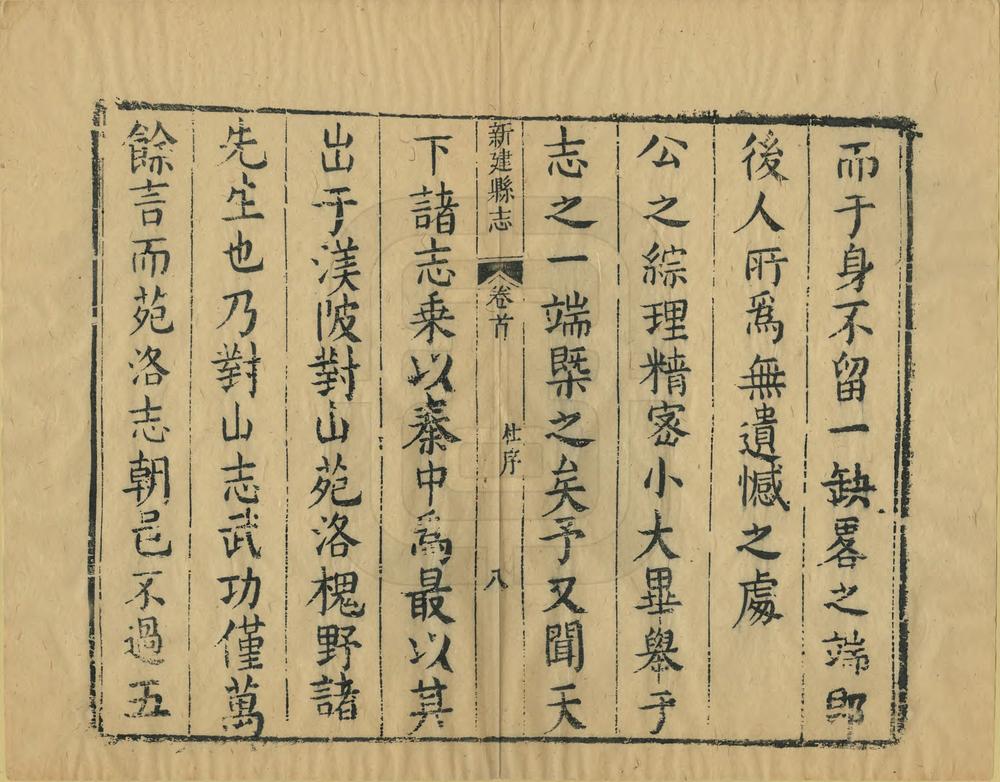 而于身不留一缺畧之端即
後人所為無遺憾之處
公之綜理精宻小大畢舉于
志之一端槩之矣予又聞天
新建縣志
卷首
杜序
八
下諸志乗以秦中為最以其
出于渼陂對山苑洛槐野諸
先生也乃對山志武功僅萬
餘言而苑洛志朝邑不過五